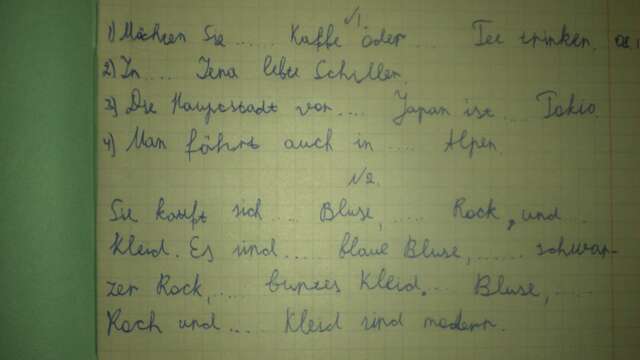 №1.
1) Möchten Sie ...... Kaffe oder .... Tee trinken.
2) In .... Jena lebte Schiller.
3) Die Hauptstadt von .... Japan ist ... Tokio.
4) Man fährt auch in .... Alpen.
№2.
Sie kauft sich .... Bluse, .... Rock, und ...
Kleid. Es sind .... blaue Bluse, ...... schwar-
zer Rock, .... buntes Kleid. .. Bluse, .....
Rock und .... Kleid sind modern.